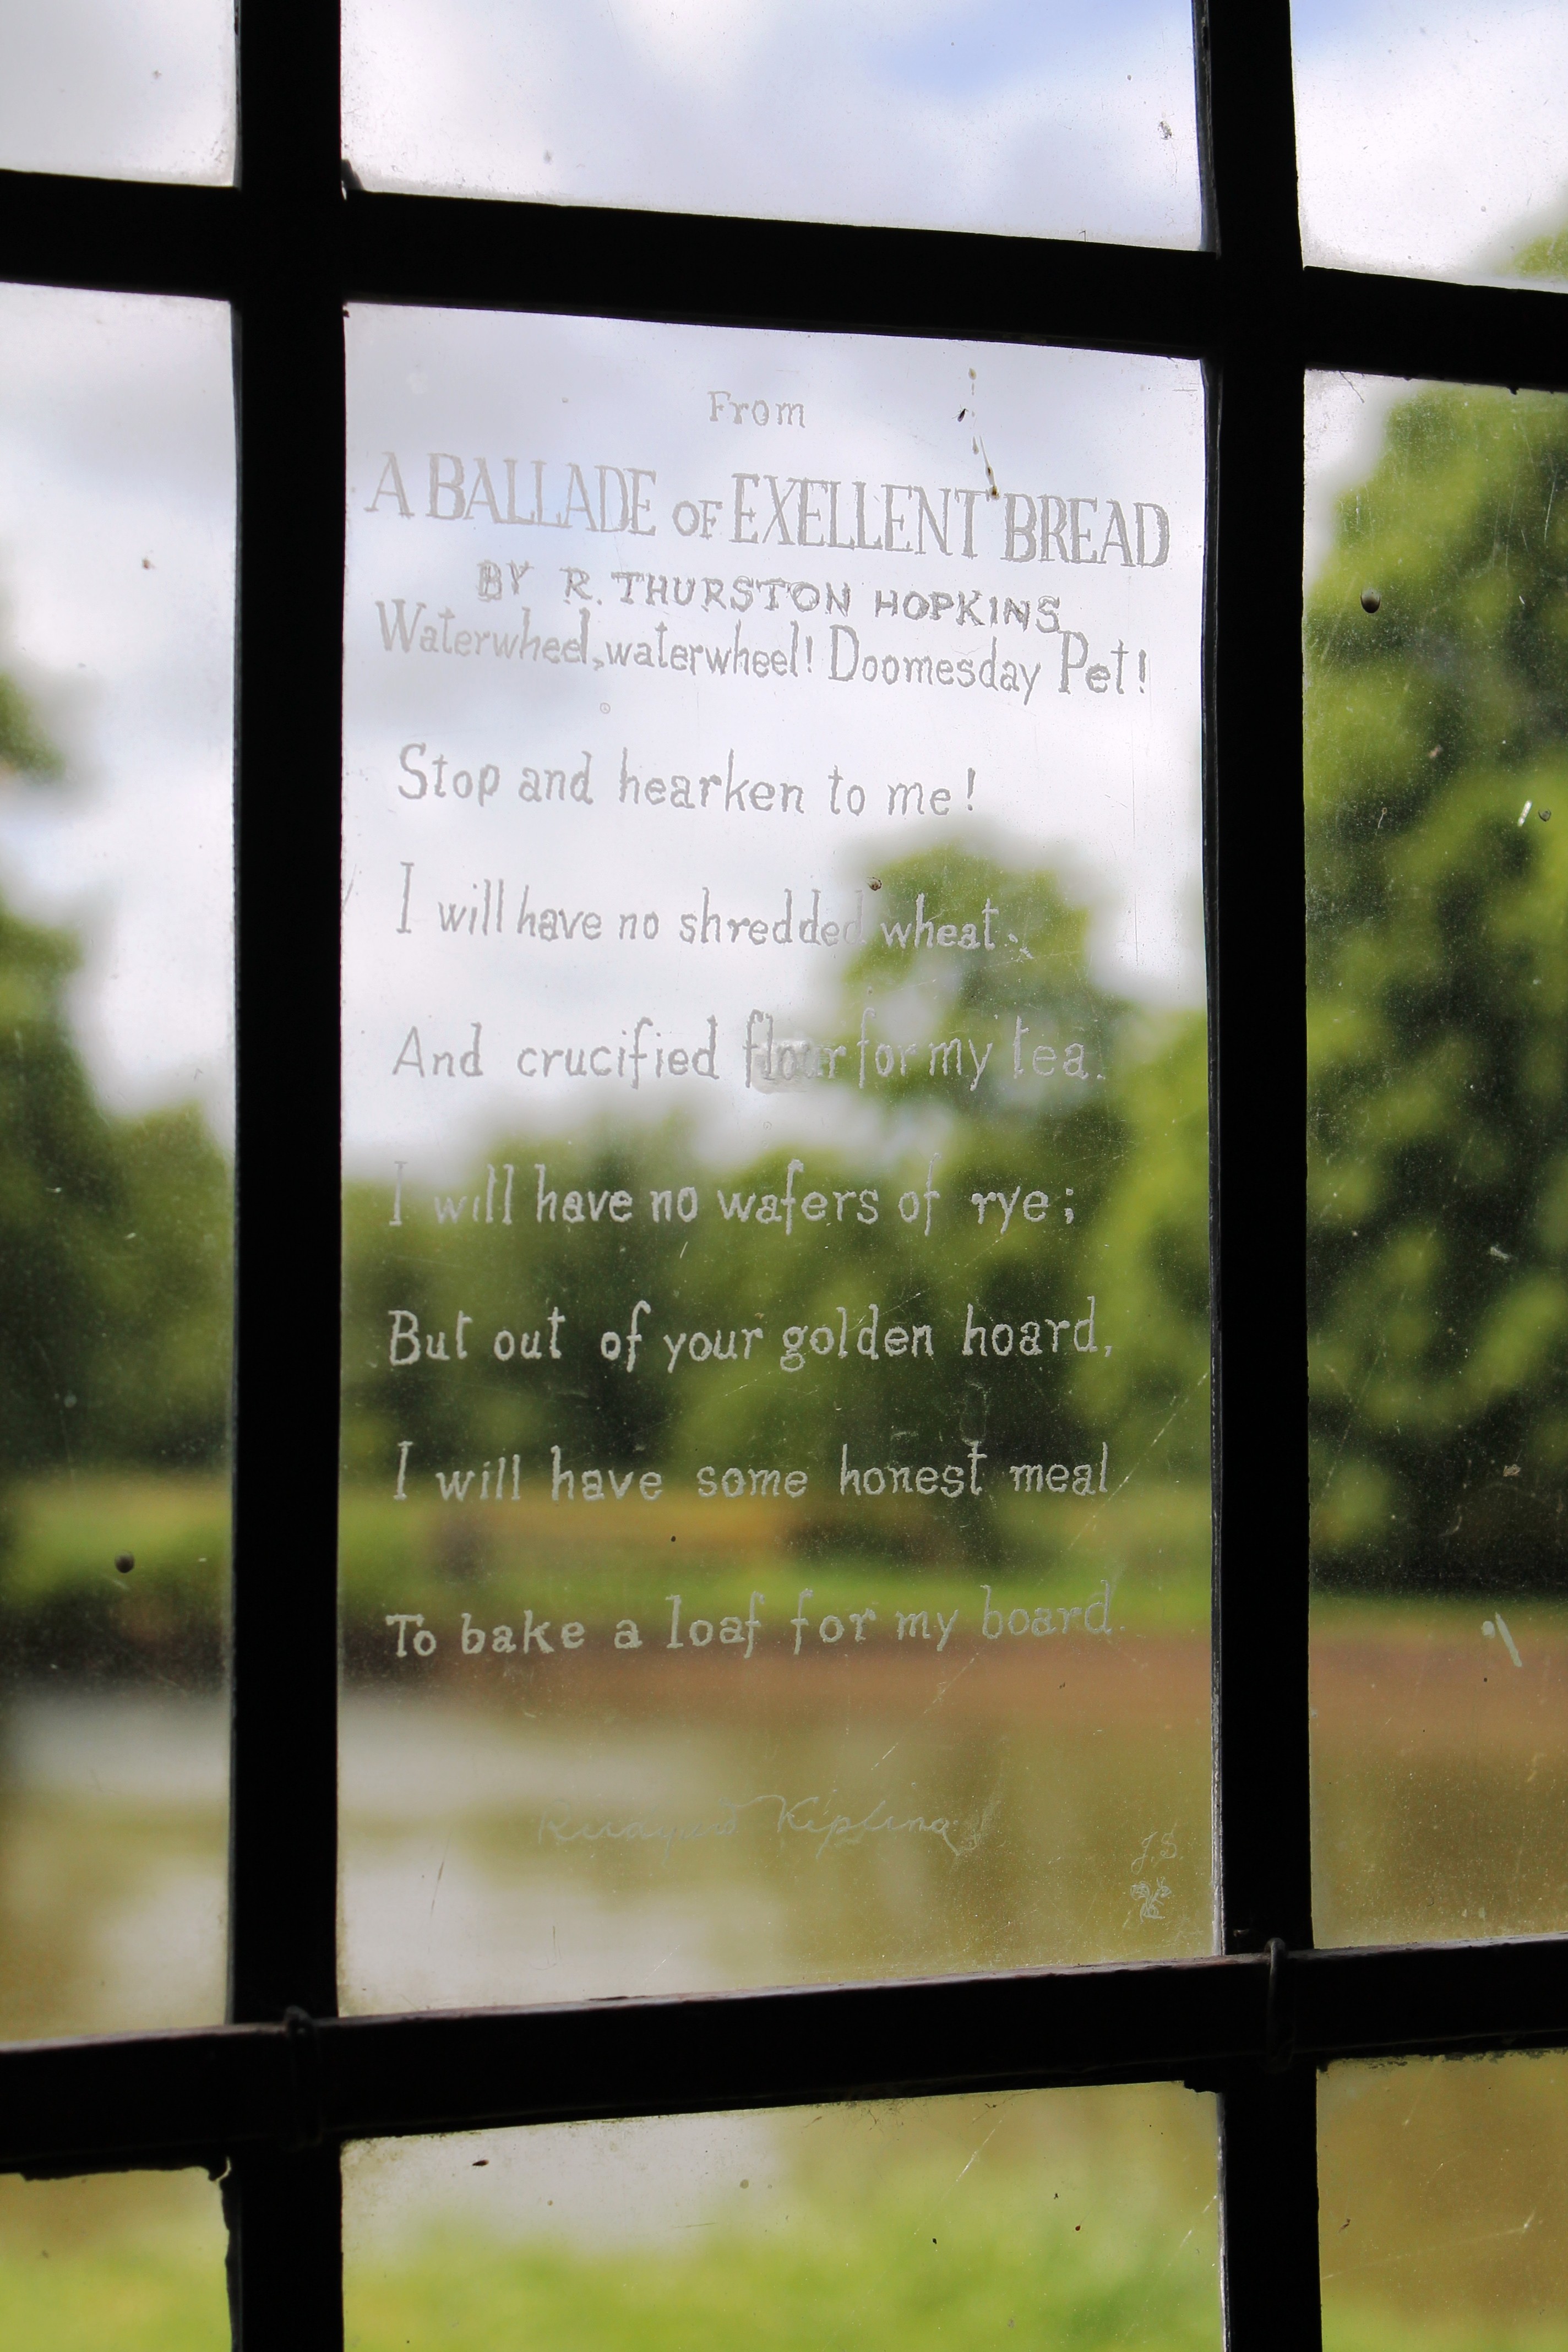 From
A BALLADE OF EXELLENT BREAD
BY R. THURSTON HOPKINS
Waterwheel, waterwheel! Doomesday Pet!
Stop and hearken to me!
I will have no shredded wheat.
And crucified flour for my tea.
I will have no wafers of rye;
But out of your golden hoard,
I will have some honest meal
To bake a loaf for my board.
Rudyard Kipling
J.S.